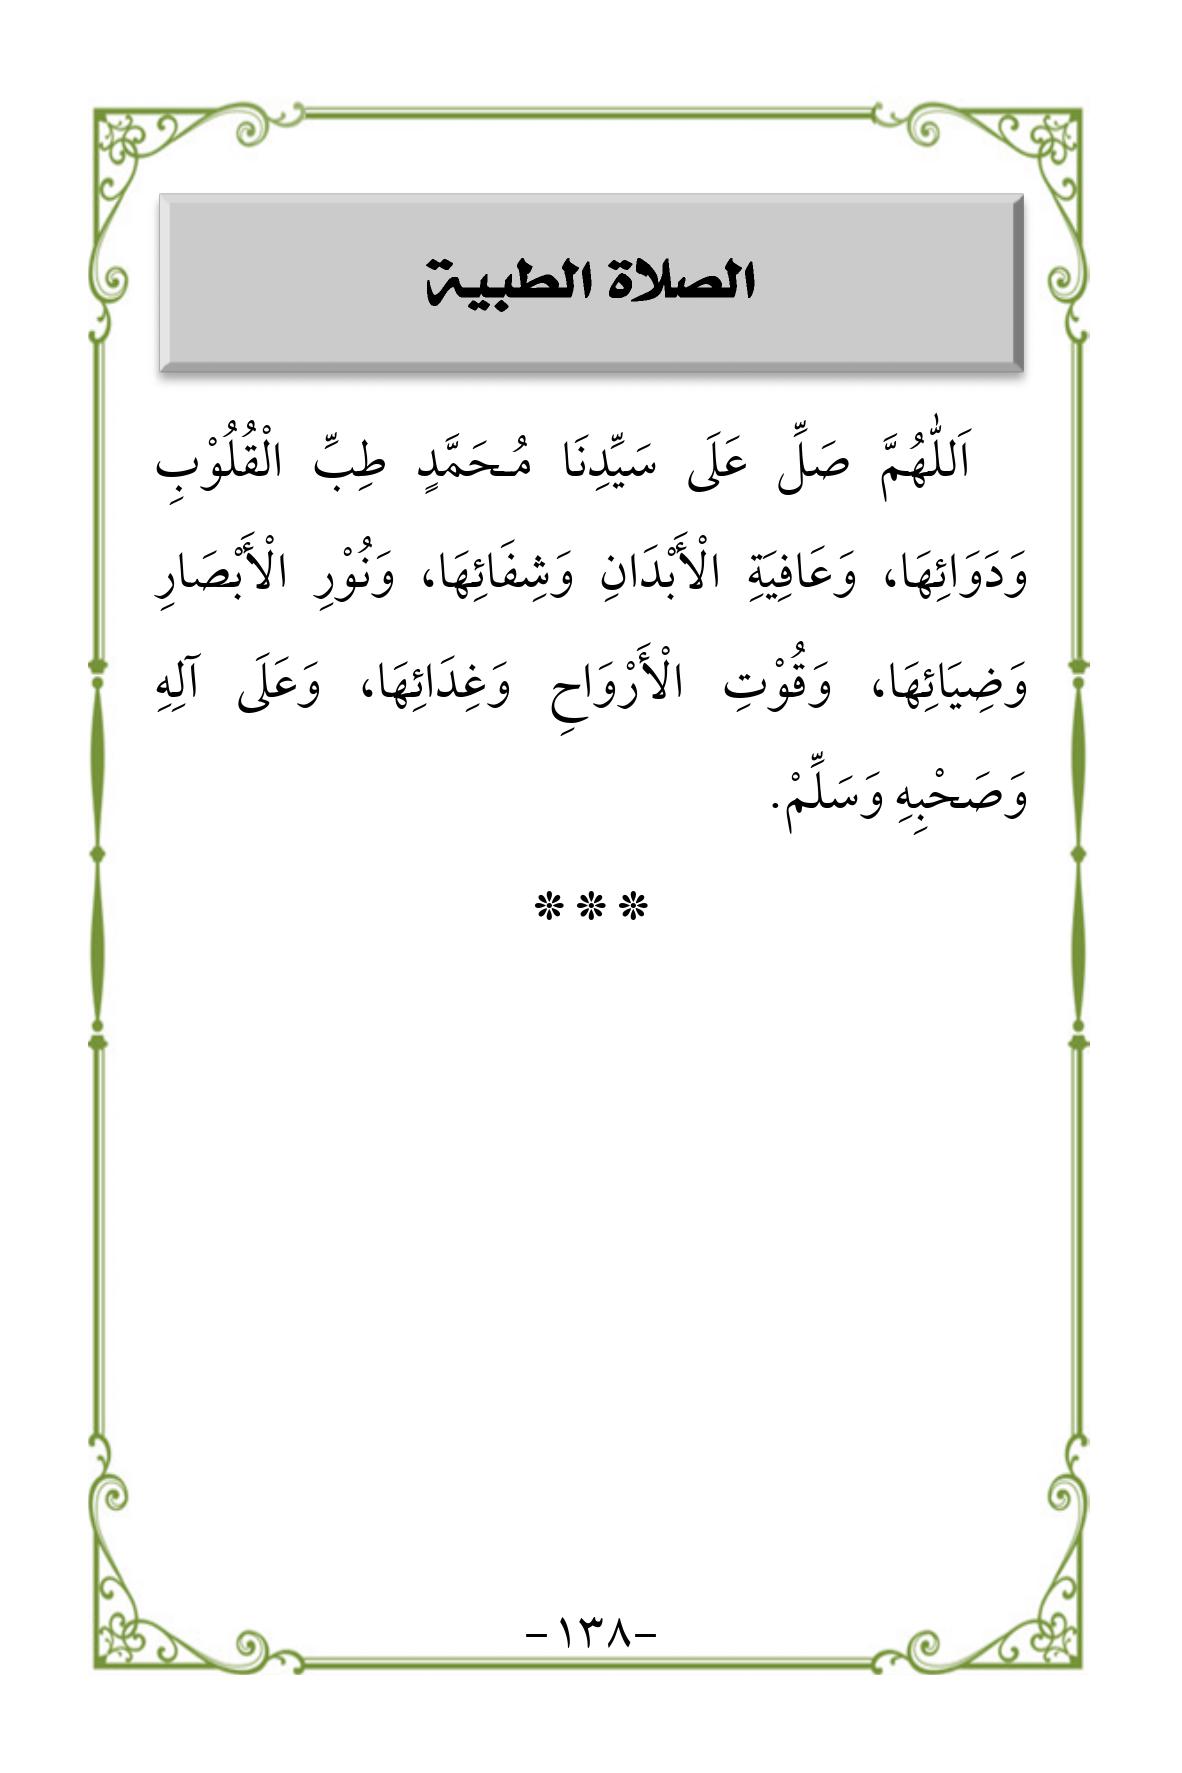 الصلاة الطبية
اَللّٰهُمَّ صَلِّ عَلَى سَيِّدِنَا مُحَمَّدٍ طِبِّ الْقُلُوْبِ
وَدَوَائِهَا، وَعَافِيَةِ الْأَبْدَانِ وَشِفَائِهَا، وَنُوْرِ الْأَبْصَارِ
وَضِيَائِهَا، وَقُوْتِ الْأَرْوَاحِ وَغِذَائِهَا، وَعَلَى آلِهِ
وَصَحْبِهِ وَسَلِّمْ.
❊ ❊ ❊
-١٣٨-